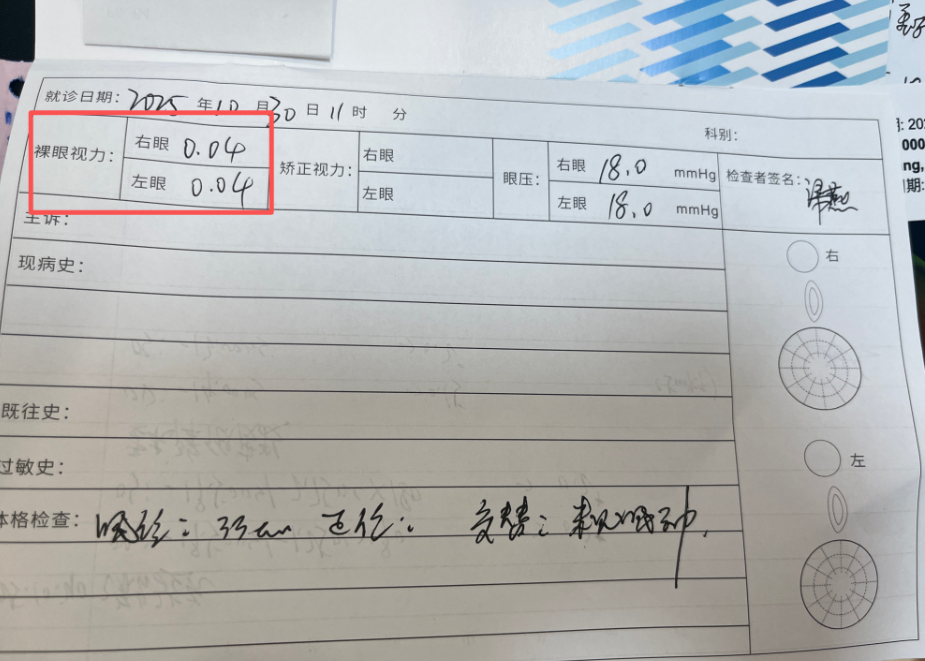 就诊日期: 2025 年 10 月 30 日 11 时 分
科别:
裸眼视力: 右眼 0.04
左眼 0.04
矫正视力: 右眼
左眼
眼压: 右眼 18.0 mmHg
左眼 18.0 mmHg
检查者签名:
主诉:
现病史:
右
既往史:
过敏史:
左
体格检查: 眼位: 33cm 正位; 交替: 未见明显动.
000
ng,
期: